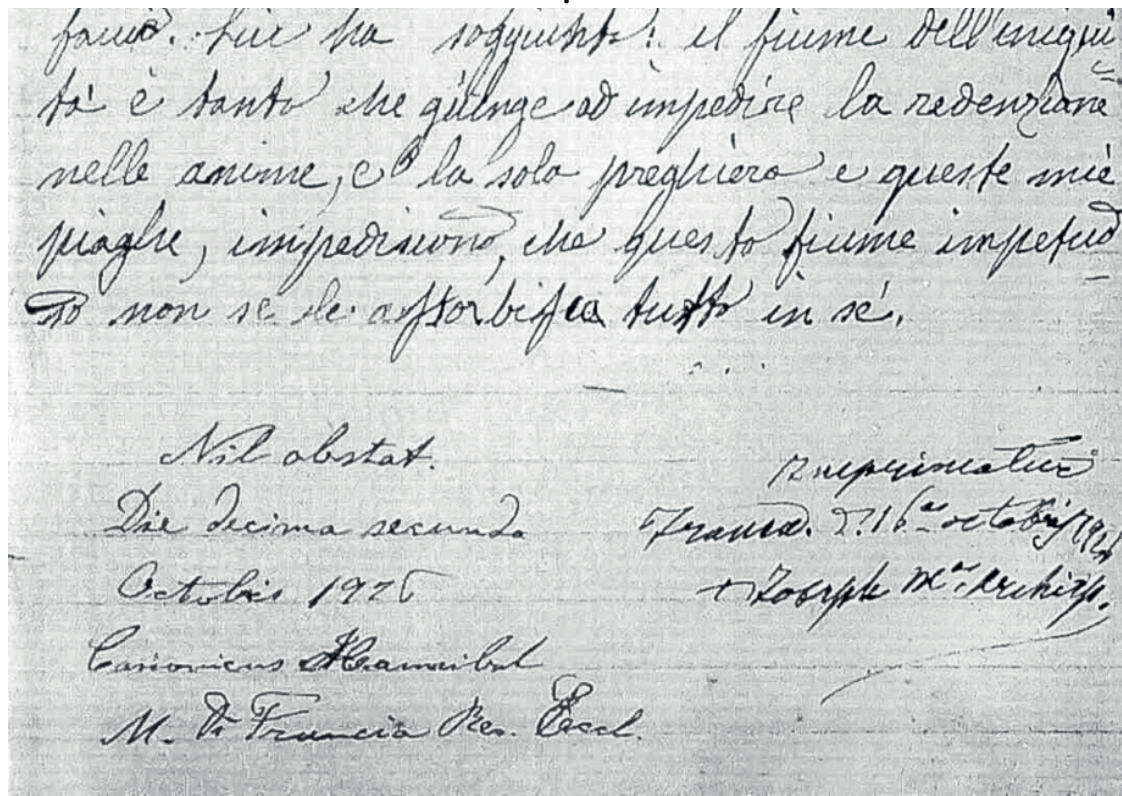 facio. Lui ha soggiunto: il fiume dell'iniqui
tà è tanto che giunge ad impedire la redenzione
nelle anime, e la sola preghiera e queste mie
piaghe, impediscono, che questo fiume impetuo
so non se le assorbisca tutto in sé.
Nil obstat.
Die decima secunda
Octobris 1926
Canonicus Hannibal
M. Di Francia Rev. Eccl.
Imprimatur
16 octobris 1926
+ Joseph M. Archiep.